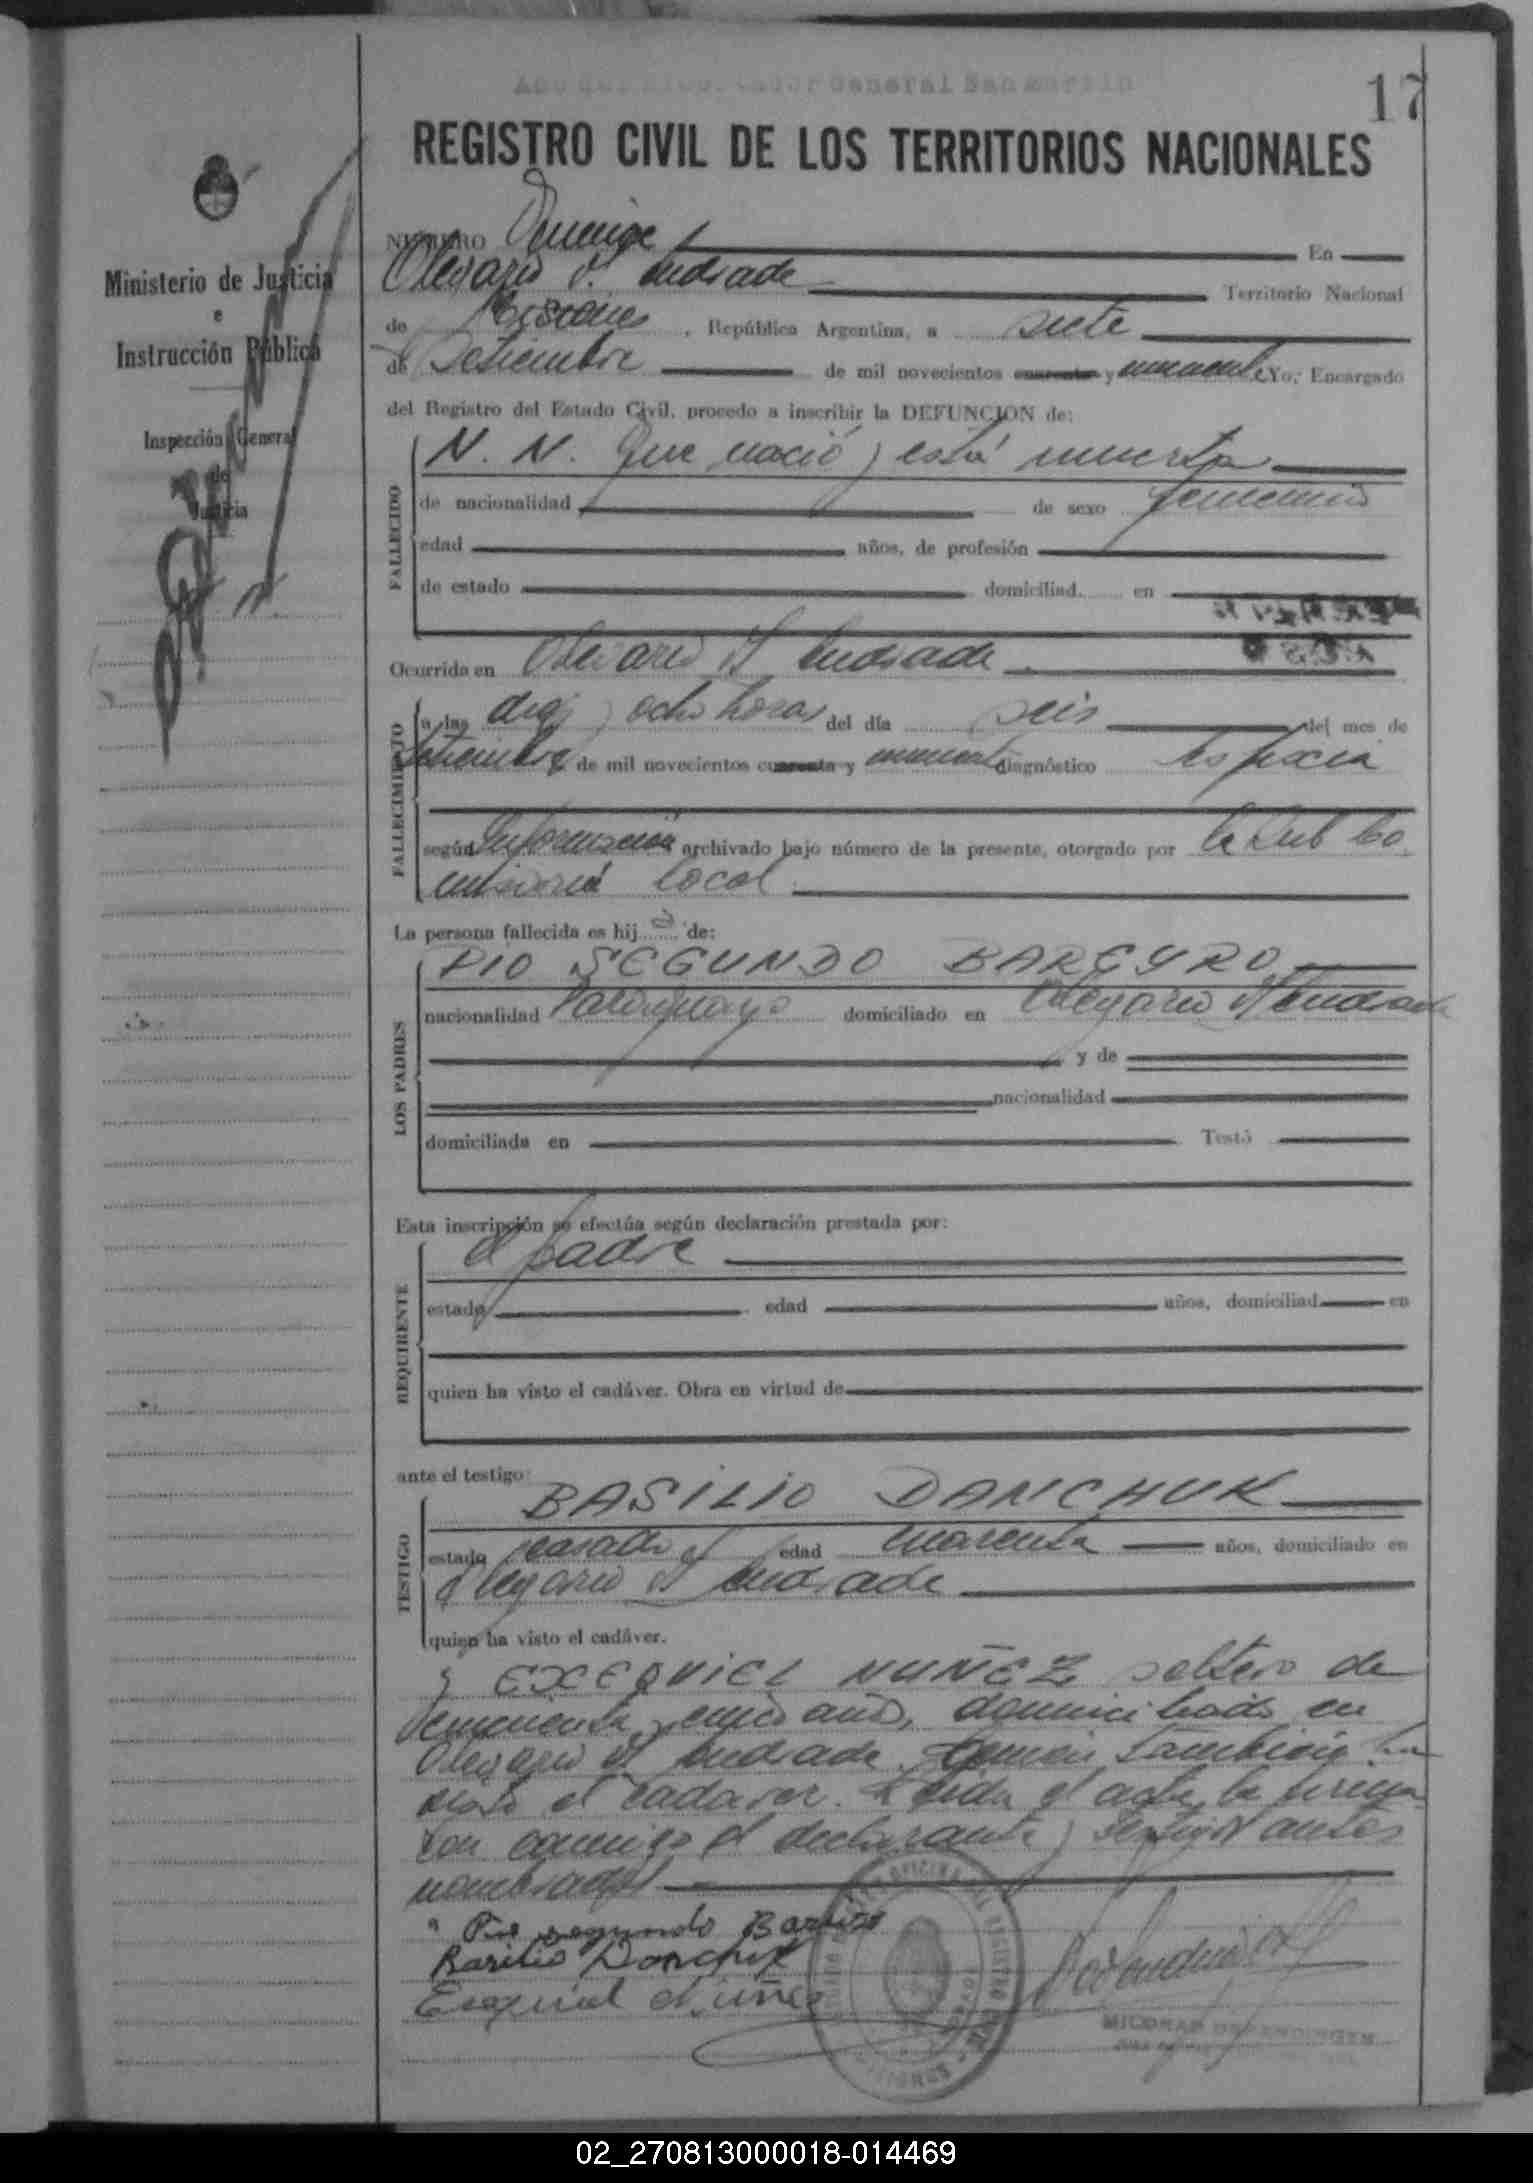 17
REGISTRO CIVIL DE LOS TERRITORIOS NACIONALES
Ministerio de Justicia
e
Instrucción Pública
Inspección General
de
Justicia
NUMERO En
Olegario V. Andrade Territorio Nacional
de Misiones, República Argentina, a siete
de Setiembre de mil novecientos cuarenta y cincuenta Yo, Encargado
del Registro del Estado Civil, procedo a inscribir la DEFUNCION de:
FALLECIDO
N. N. que nació y está muerta
de nacionalidad de sexo femenino
edad años, de profesión
de estado domiciliad en
Ocurrida en Olegario V Andrade
FALLECIMIENTO
a las diez y ocho horas del día seis del mes de
Setiembre de mil novecientos cuarenta y cincuenta diagnóstico Asfixia
según Información archivado bajo número de la presente, otorgado por la Sub Co
misaria local
La persona fallecida es hija de:
LOS PADRES
PIO SEGUNDO BAREYRO
nacionalidad Paraguayo domiciliado en Olegario V Andrade
y de
nacionalidad
domiciliada en Testó
Esta inscripción se efectúa según declaración prestada por:
REQUIRENTE
el padre
estado edad años, domiciliad en
quien ha visto el cadáver. Obra en virtud de
ante el testigo:
TESTIGO
BASILIO DANCHUK
estado casado edad cuarenta años, domiciliado en
Olegario V Andrade
quien ha visto el cadáver.
y EXEQUIEL NUÑEZ soltero de
cincuenta y cinco años, domiciliado en
Olegario V Andrade quien también ha
visto el cadaver. Leida el acta, la firma
con conmigo el declarante y testigos antes
nombrados
Pio segundo Bareiro
Basilio Danchuk
Exequiel Nuñez
02_270813000018-014469